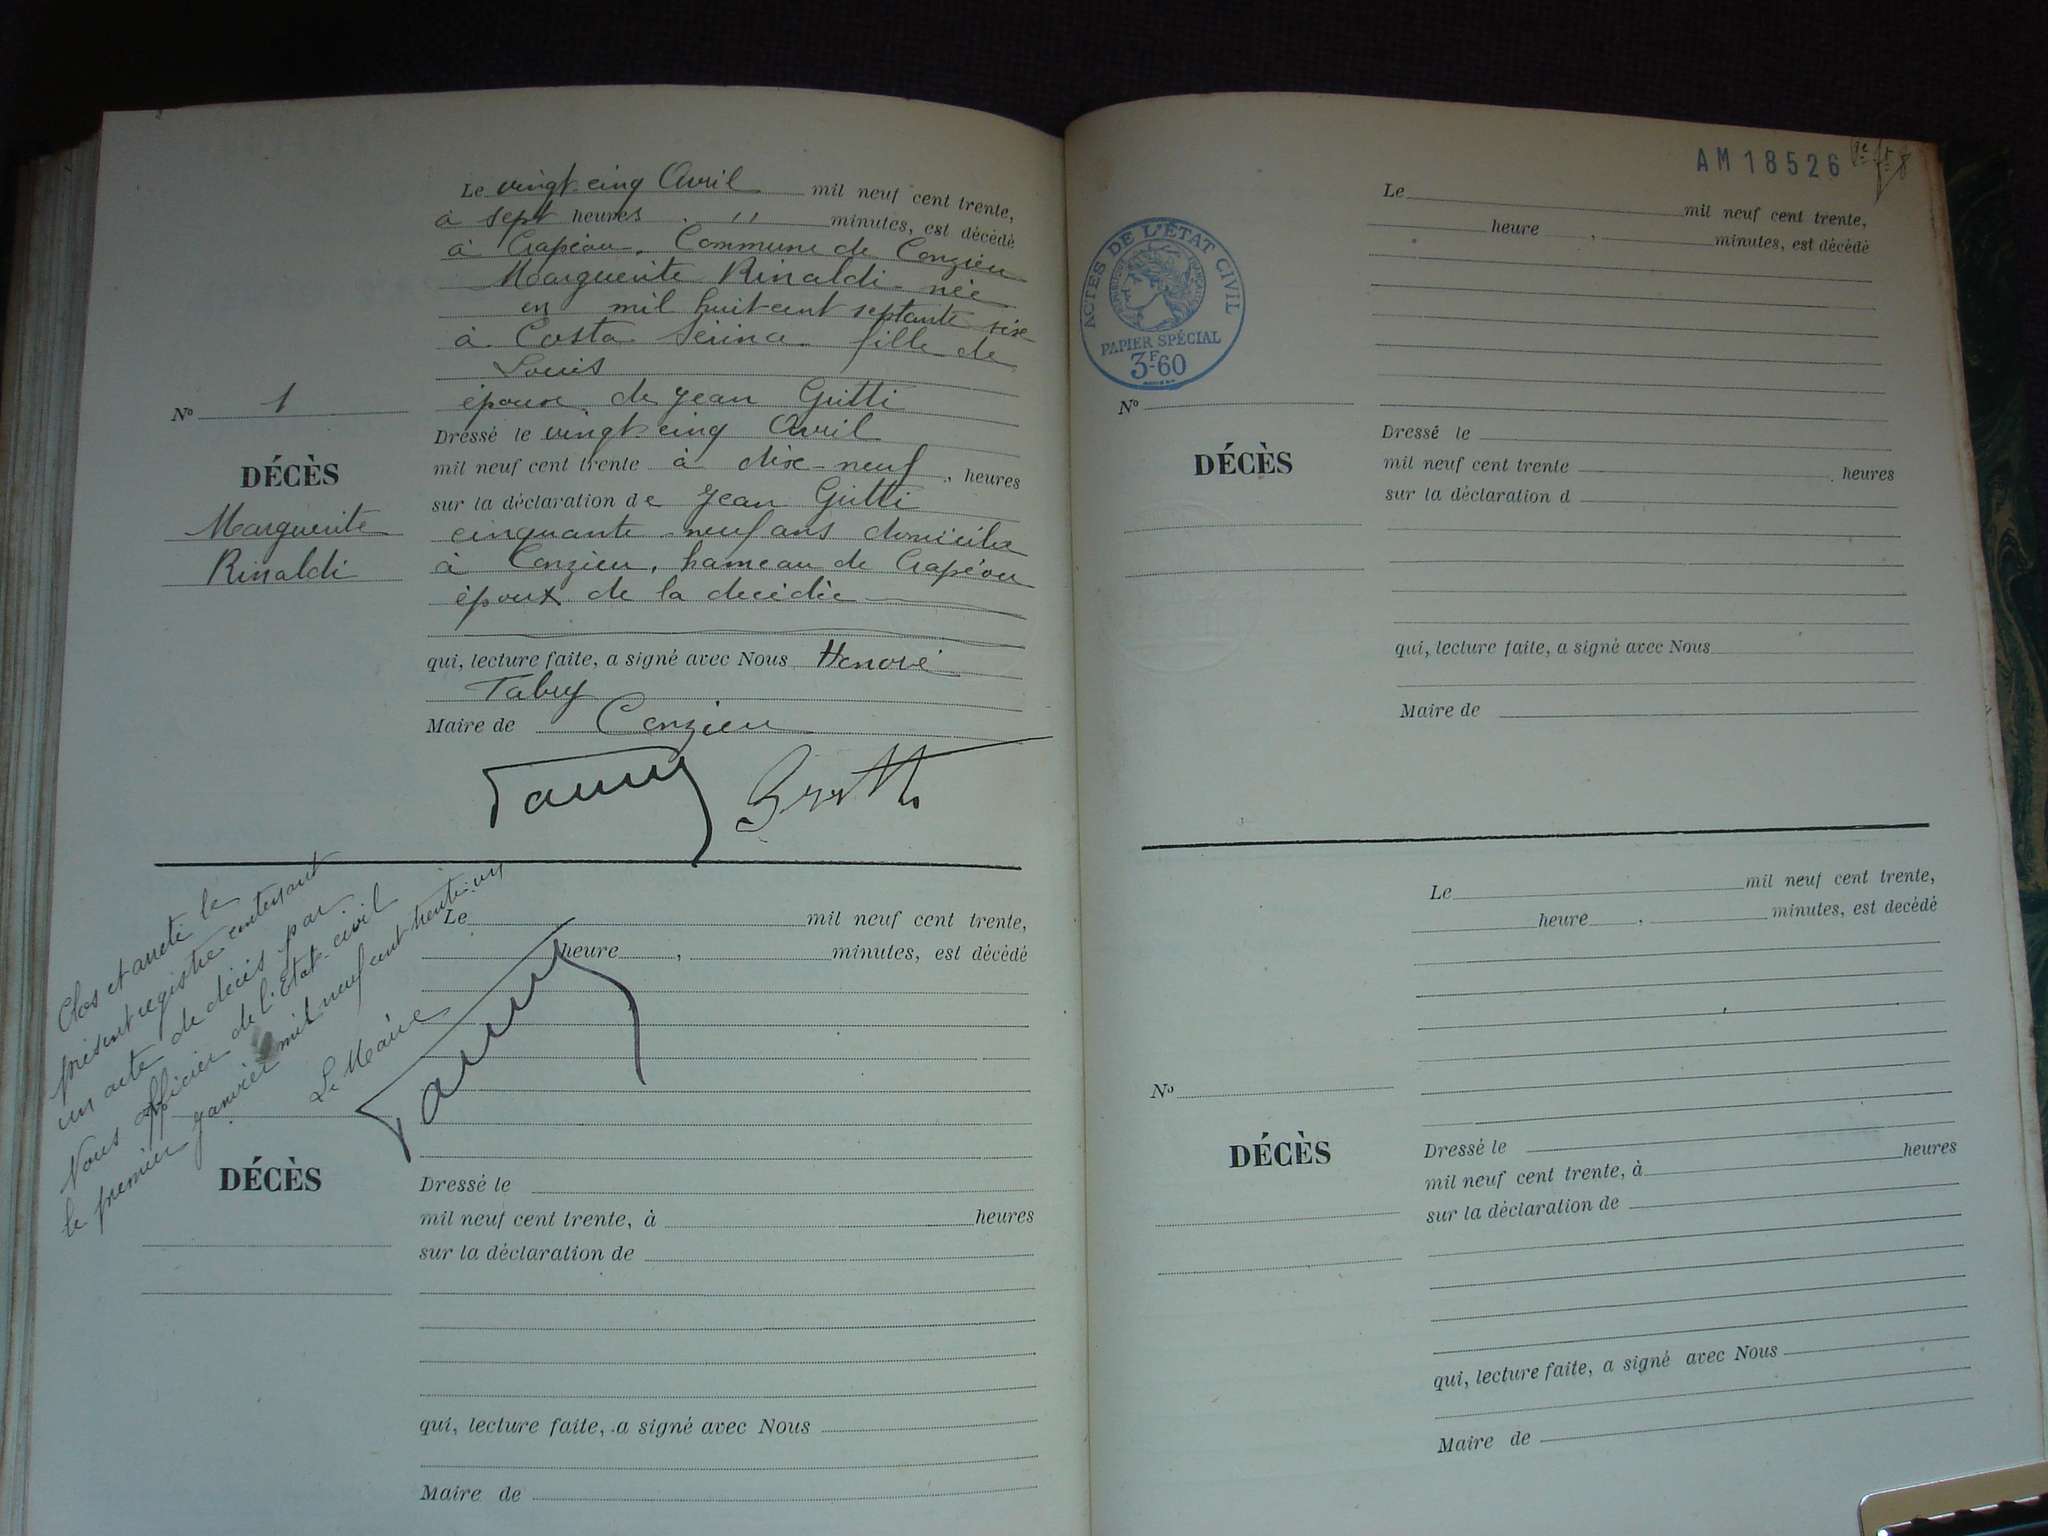 Le vingt-cinq Avril mil neuf cent trente,
à sept heures , " minutes, est décédé
à Crapéou, Commune de Conzieu
Marguerite Rinaldi née
en mil huit cent septante six
à Costa Serina fille de
Louis
épouse de Jean Gritti
Dressé le vingt-cinq Avril
mil neuf cent trente à dix-neuf , heures
sur la déclaration de Jean Gritti
cinquante-neuf ans domicilié
à Conzieu, hameau de Crapéou
époux de la décédée
qui, lecture faite, a signé avec Nous Honoré
Maire de Conzieu
No 1
DÉCÈS
Marguerite
Rinaldi
Clos et arrêté le
présent registre contenant
un acte de décès par
Nous officier de l'Etat-civil
le premier janvier mil neuf cent trente-un
Le Maire
Le mil neuf cent trente,
heure , minutes, est décédé
DÉCÈS
Dressé le
mil neuf cent trente, à heures
sur la déclaration de
qui, lecture faite, a signé avec Nous
Maire de
AM 18526
ACTES DE L'ÉTAT CIVIL
RÉPUBLIQUE FRANÇAISE
PAPIER SPÉCIAL
3F-60
Le mil neuf cent trente,
heure , minutes, est décédé
No
DÉCÈS
Dressé le
mil neuf cent trente , heures
sur la déclaration d
qui, lecture faite, a signé avec Nous
Maire de
Le mil neuf cent trente,
heure , minutes, est decédé
No
DÉCÈS
Dressé le
mil neuf cent trente, à heures
sur la déclaration de
qui, lecture faite, a signé avec Nous
Maire de